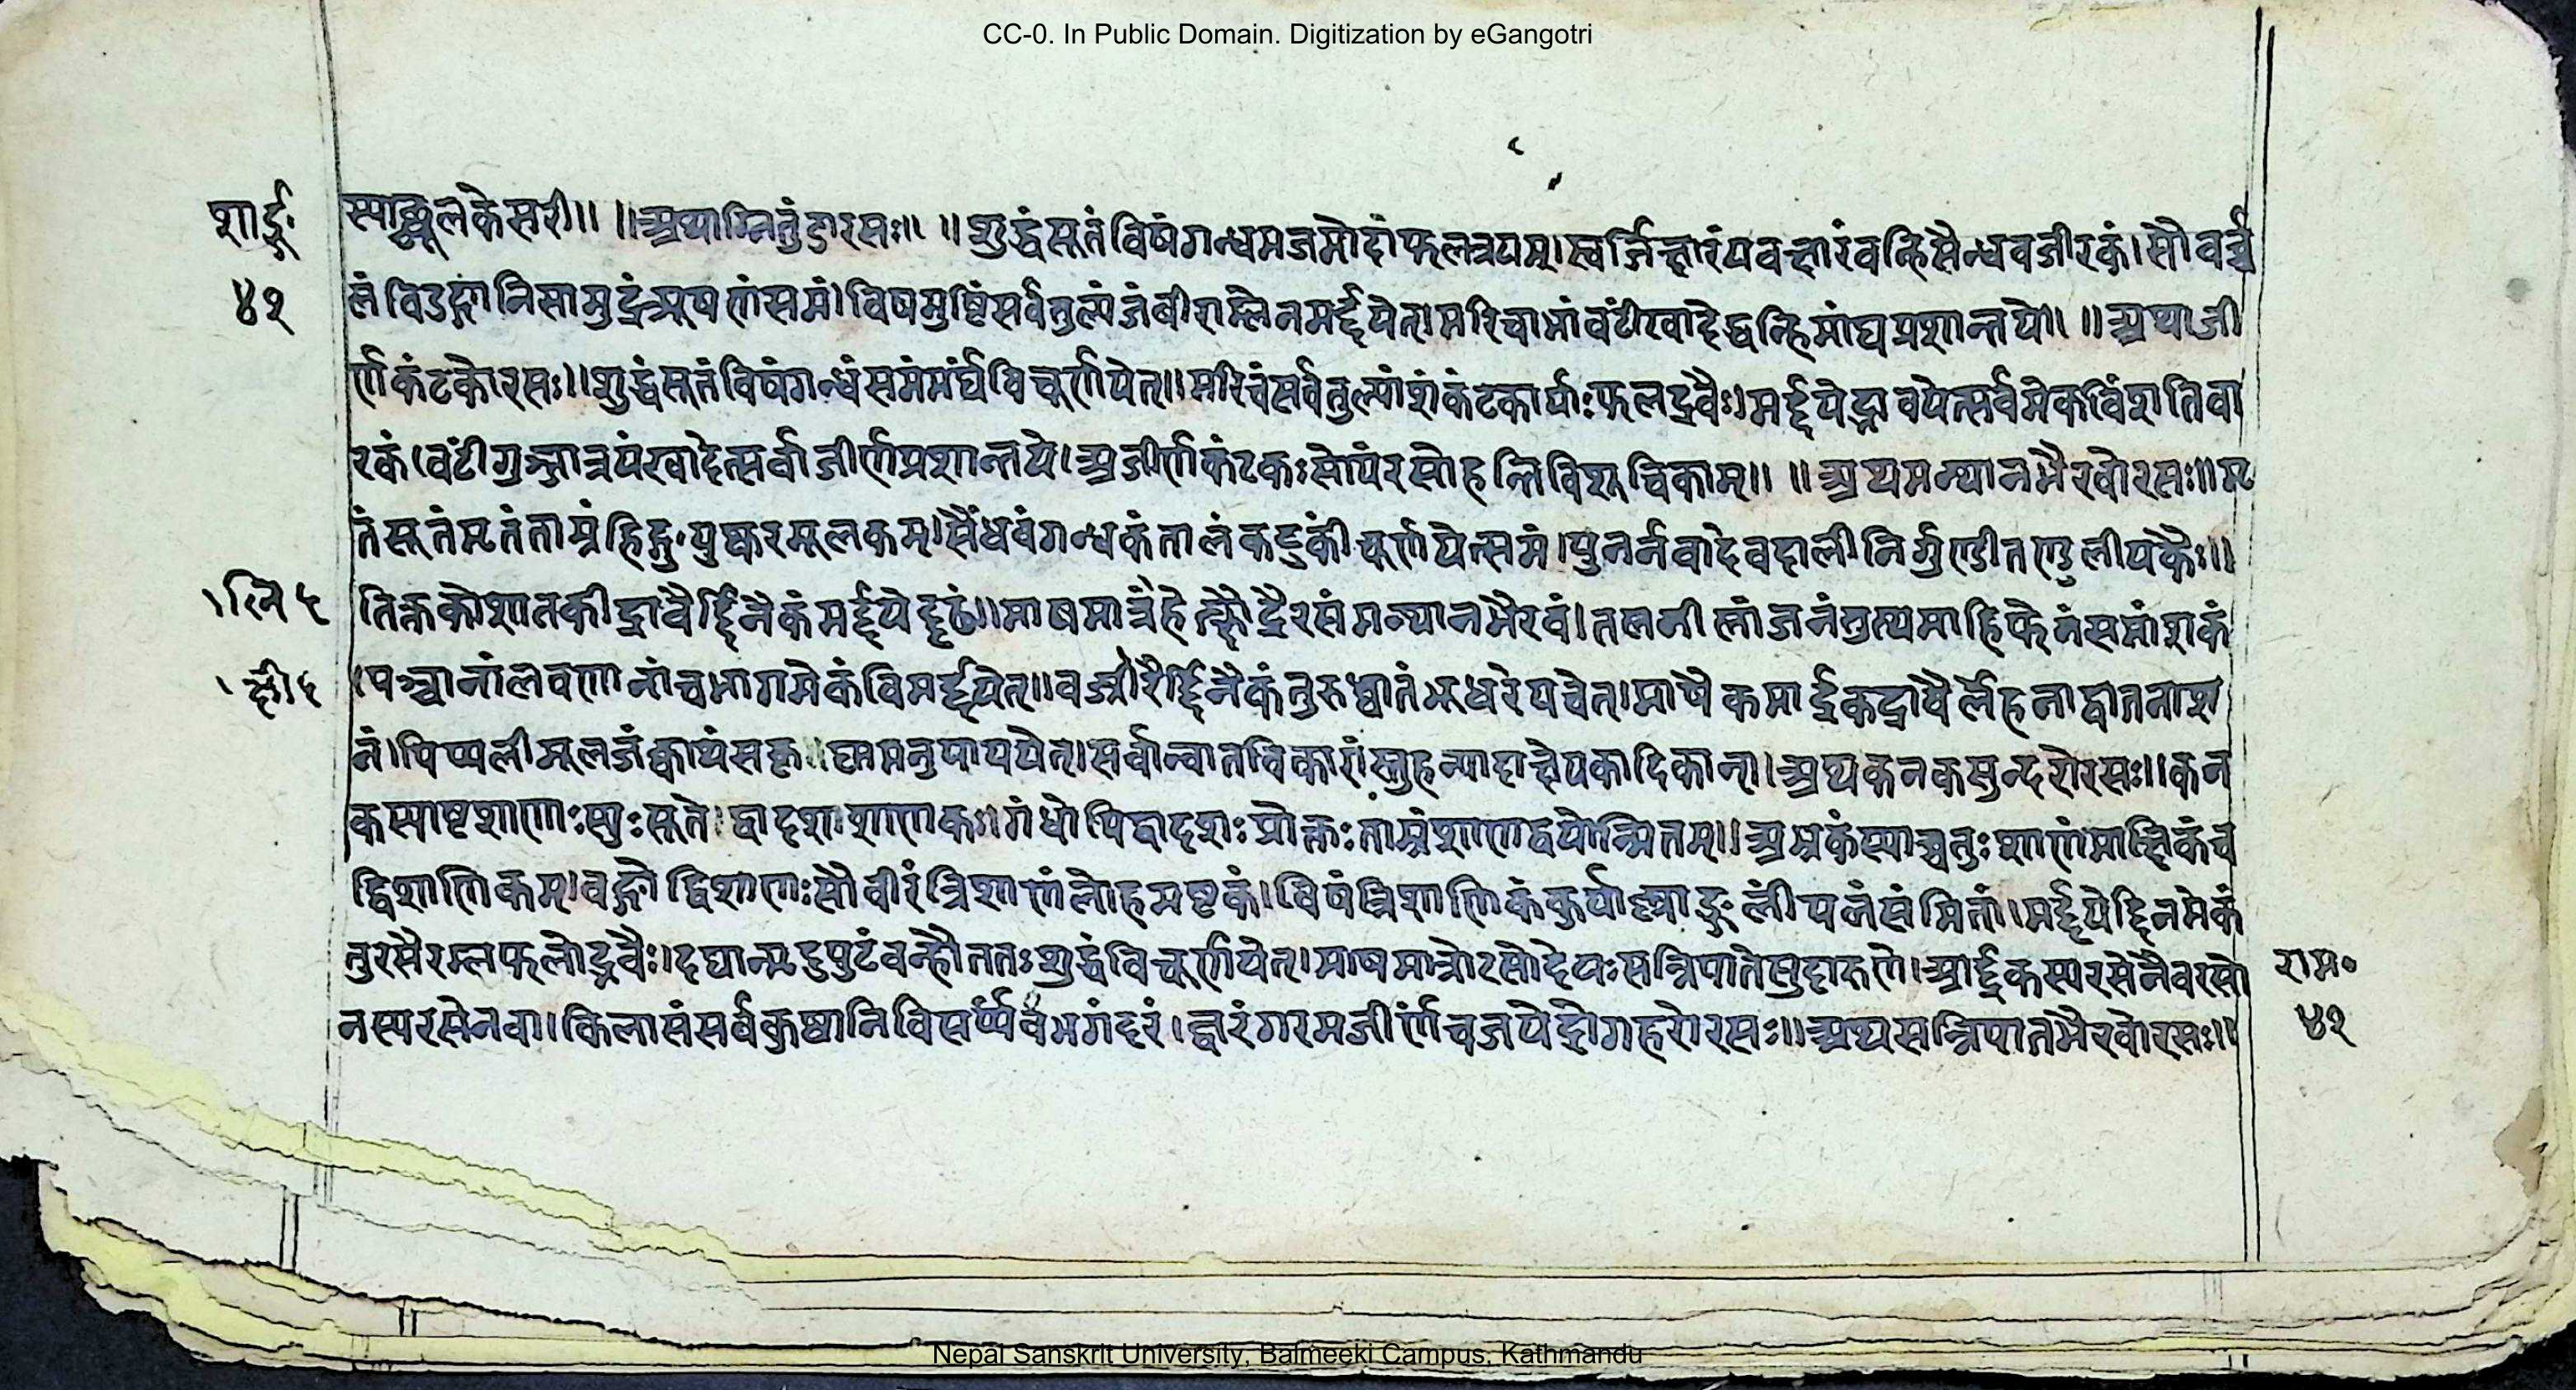 CC-0. In Public Domain. Digitization by eGangotri
शार्ङ्ग॰
४२
स्याच्छूलकेसरी॥ ॥अथाग्नितुंडीरसः॥ ॥शुद्धंसूतंविषंगन्धमजमोदांफलत्रयम्।स्वर्जिक्षारंयवक्षारंवन्हिसैन्धवजीरकं।सौवर्च
लंविडङ्गानिसामुद्रंत्र्यूषणंसमं।विषमुष्टिंसर्वतुल्यंजंबीराम्लेनमर्द्दयेत्।मरिचाभांवटींखादेद्वन्हिमांद्यप्रशान्तये॥ ॥अथाजी
र्णकंटकोरसः॥शुद्धंसूतंविषंगन्धंसमंसर्वंविचूर्णयेत्॥मरिचंसर्वतुल्यांशंकंटकार्याःफलद्रवैः।मर्द्दयेद्भावयेत्सर्वमेकविंशतिवा
रकं।वटींगुञ्जात्रयंखादेत्सर्वाजीर्णप्रशान्तये।अजीर्णकंटकःसोयंरसोहन्तिविशूचिकाम्॥ ॥अथमन्थानभैरवोरसः॥मृ
तंसूतंमृतंताम्रंहिङ्गुपुष्करमूलकम्।सैंधवंगन्धकंतालंकटुकींचूर्णयेत्समं।पुनर्नवादेवदालीनिर्गुण्डीतण्डुलीयकैः॥
तिक्तकोशातकीद्रावैर्द्दिनैकंमर्द्दयेद्दृढं॥माषमात्रंलिहेत्क्षौद्रैरसंमन्थानभैरवं।
पञ्चानांलवणानांचभागमेकंविमर्द्दयेत्॥वज्रीक्षीरैर्द्दिनैकंतुरुध्वातंभूधरेपचेत्।माषैकमार्द्रकद्रावैर्लेहनाद्वातनाश
नं।पिप्पलीमूलजंक्वाथंसकृष्णमनुपाययेत्।सर्वान्वातविकारांस्तुहन्यादाक्षेपकादिकान्।अथकनकसुन्दरोरसः॥कन
कस्याष्टशाणाःस्युःसूतोद्वादशशाणकः।गंधोपिद्वादशःप्रोक्तःताम्रंशाणद्वयोन्मितम्॥अभ्रकंस्याच्चतुःशाणंमाक्षिकंच
द्विशाणिकम्।वङ्गोद्विशाणःसौवीरंत्रिशाणंलोहमष्टकं।विषंत्रिशाणिकंकुर्याल्लाङ्गलींपलसंमितां।मर्द्दयेद्दिनमेकं
तुरसैरम्लफलोद्भवैः।दद्यान्मृदुपुटंवन्हौततःशुद्धंविचूर्णयेत्।माषमात्रोरसोदेयःसन्निपातेसुदारुणे।आर्द्रकस्यरसेनैवरसो
नस्यरसेनवा।किलासंसर्वकुष्ठानिविसर्प्पंचभगंदरं।ज्वरंगरमजीर्णंचजयेद्रोगहरोरसः॥अथसन्निपातभैरवोरसः॥
राम॰
४२
Nepal Sanskrit University, Balmeeki Campus, Kathmandu